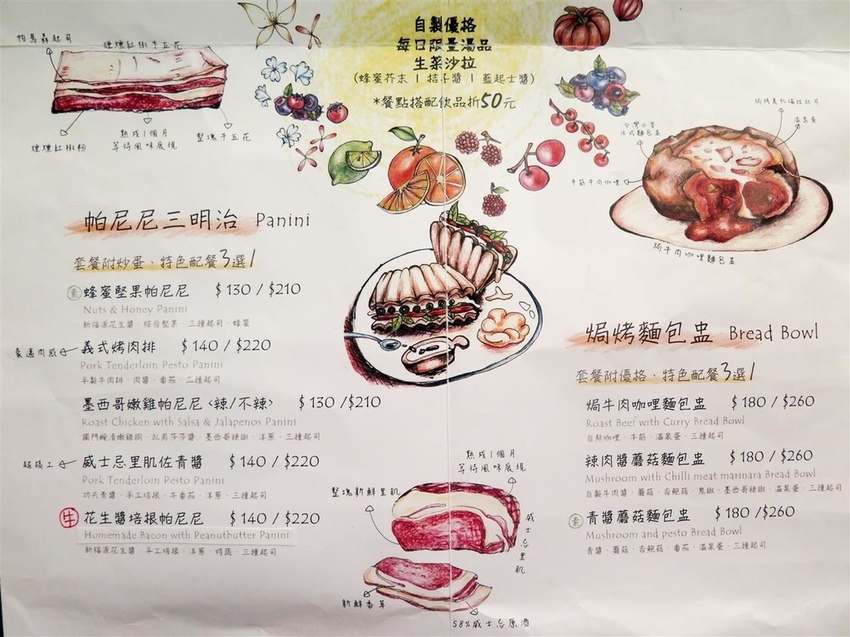 自製優格
每日限量湯品
生菜沙拉
(蜂蜜芥末 | 桔子醬 | 藍起士醬)
*餐點搭配飲品折50元
帕馬森起司
煙燻紅椒牛五花
煙燻紅椒粉
熟成1個月
等待風味展現
整塊牛五花
溫泉蛋
牛筋牛肉咖哩
焗牛肉咖哩麵包盅
帕尼尼三明治 Panini
套餐附炒蛋、特色配餐3選1
素 蜂蜜堅果帕尼尼 $130 / $210
Nuts & Honey Panini
新福源花生醬．綜合堅果．三種起司．蜂蜜
豪邁肉感
義式烤肉排 $140 / $220
Pork Tenderloin Pesto Panini
手製牛肉排．肉醬．番茄．三種起司
墨西哥嫩雞帕尼尼<辣/不辣> $130 / $210
Roast Chicken with Salsa & Jalapenos Panini
獨門醃漬嫩雞胸．私房莎莎醬．墨西哥辣椒．洋蔥．三種起司
超搞工
威士忌里肌佐青醬 $140 / $220
Pork Tenderloin Pesto Panini
功夫青醬．手工培根．牛番茄．洋蔥．三種起司
牛 花生醬培根帕尼尼 $140 / $220
Homemade Bacon with Peanutbutter Panini
新福源花生醬．手工培根．洋蔥．時蔬．三種起司
焗烤麵包盅 Bread Bowl
套餐附優格、特色配餐3選1
焗牛肉咖哩麵包盅 $180 / $260
Roast Beef with Curry Bread Bowl
自熬咖哩．牛筋．溫泉蛋．三種起司
辣肉醬蘑菇麵包盅 $180 / $260
Mushroom with Chilli meat marinara Bread Bowl
自製牛肉醬．蘑菇．杏鮑菇．黑椒．墨西哥辣椒．溫泉蛋．三種起司
素 青醬蘑菇麵包盅 $180 / $260
Mushroom and pesto Bread Bowl
青醬．蘑菇．杏鮑菇．番茄．溫泉蛋．三種起司
熟成1個月
等待風味展現
整塊新鮮里肌
威士忌里肌
新鮮香草
58%威士忌原酒